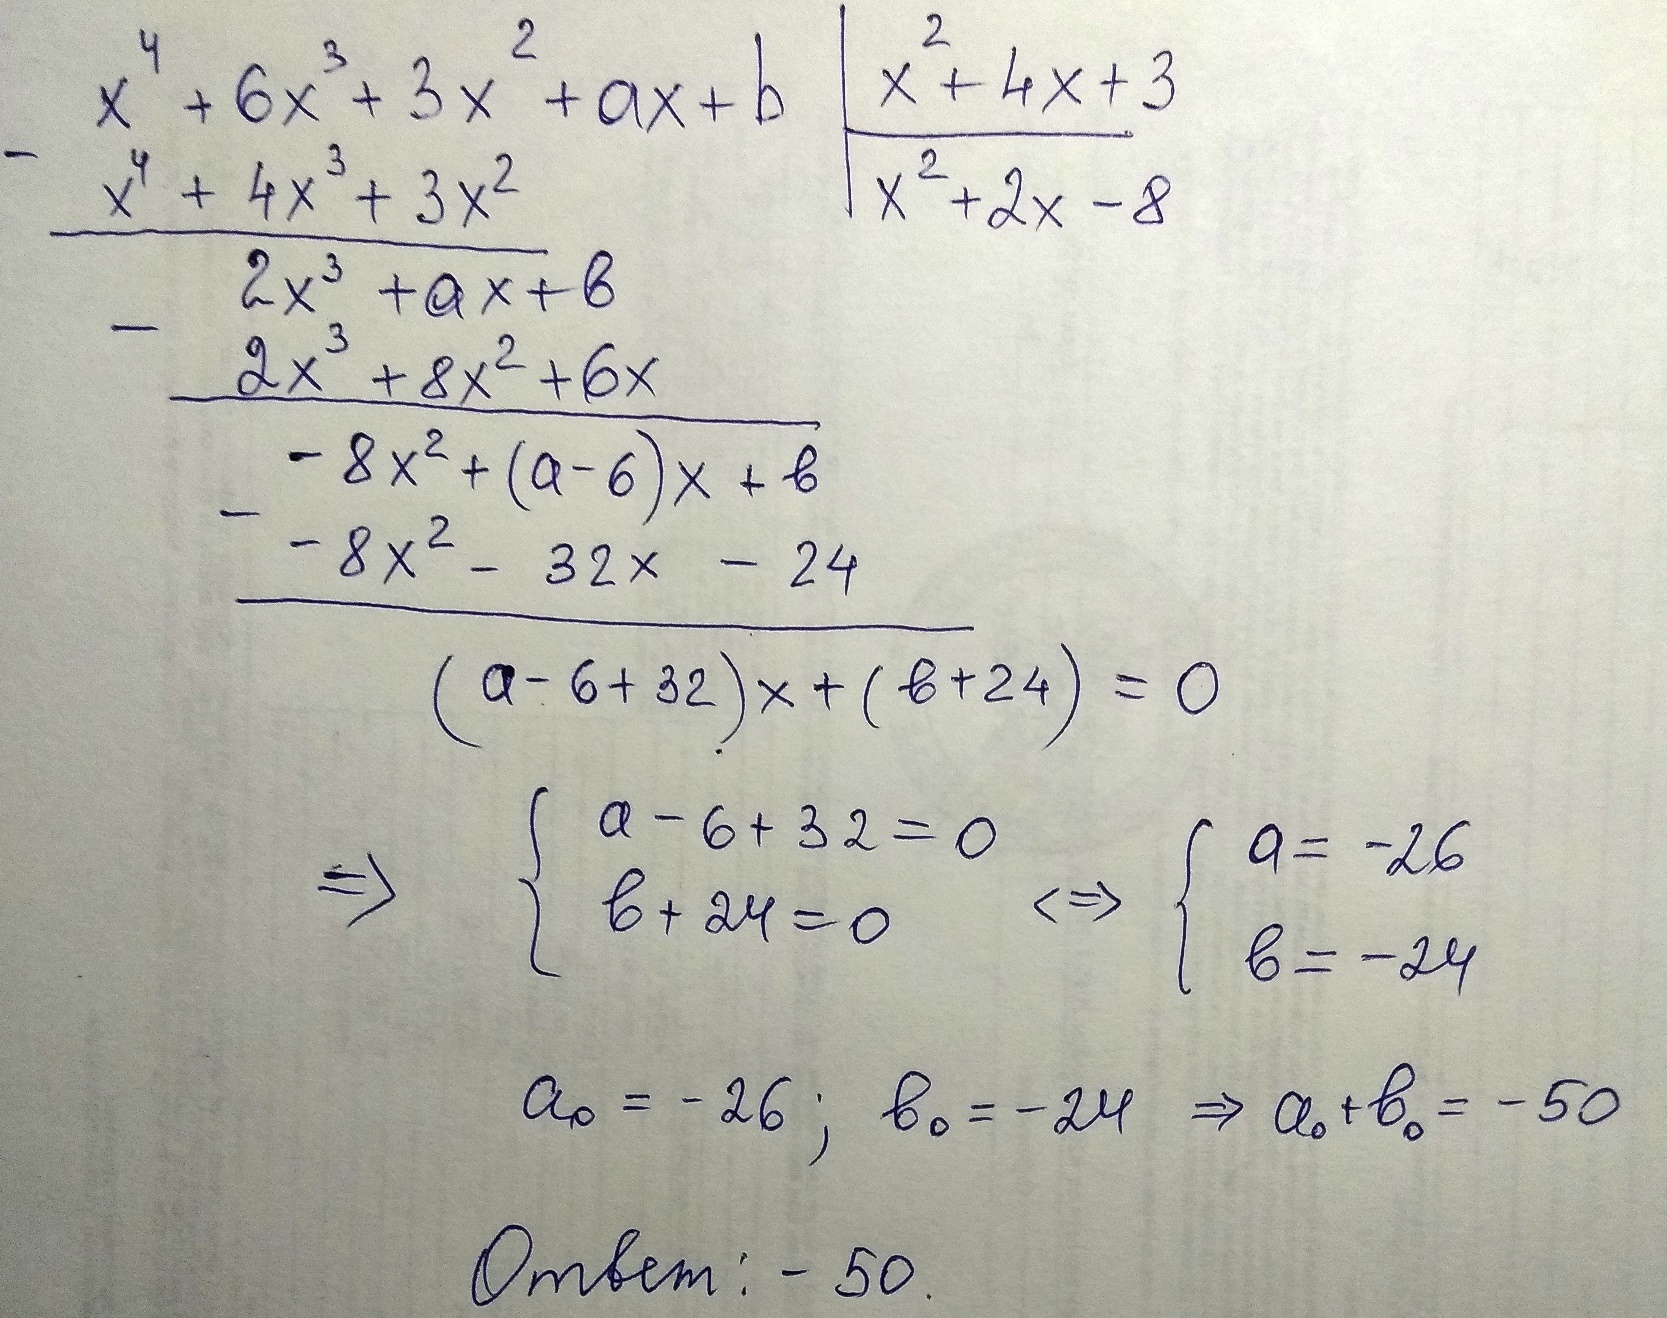 x⁴ + 6x³ + 3x² + ax + b | x² + 4x + 3
− x⁴ + 4x³ + 3x² | x² + 2x − 8
2x³ + ax + в
− 2x³ + 8x² + 6x
−8x² + (a−6)x + в
− −8x² − 32x − 24
(a−6+32)x + (в+24) = 0
⇒ { a−6+32=0 в+24=0 <=> { a= −26 в= −24
a₀ = −26; в₀ = −24 ⇒ a₀+в₀ = −50
Ответ: −50.